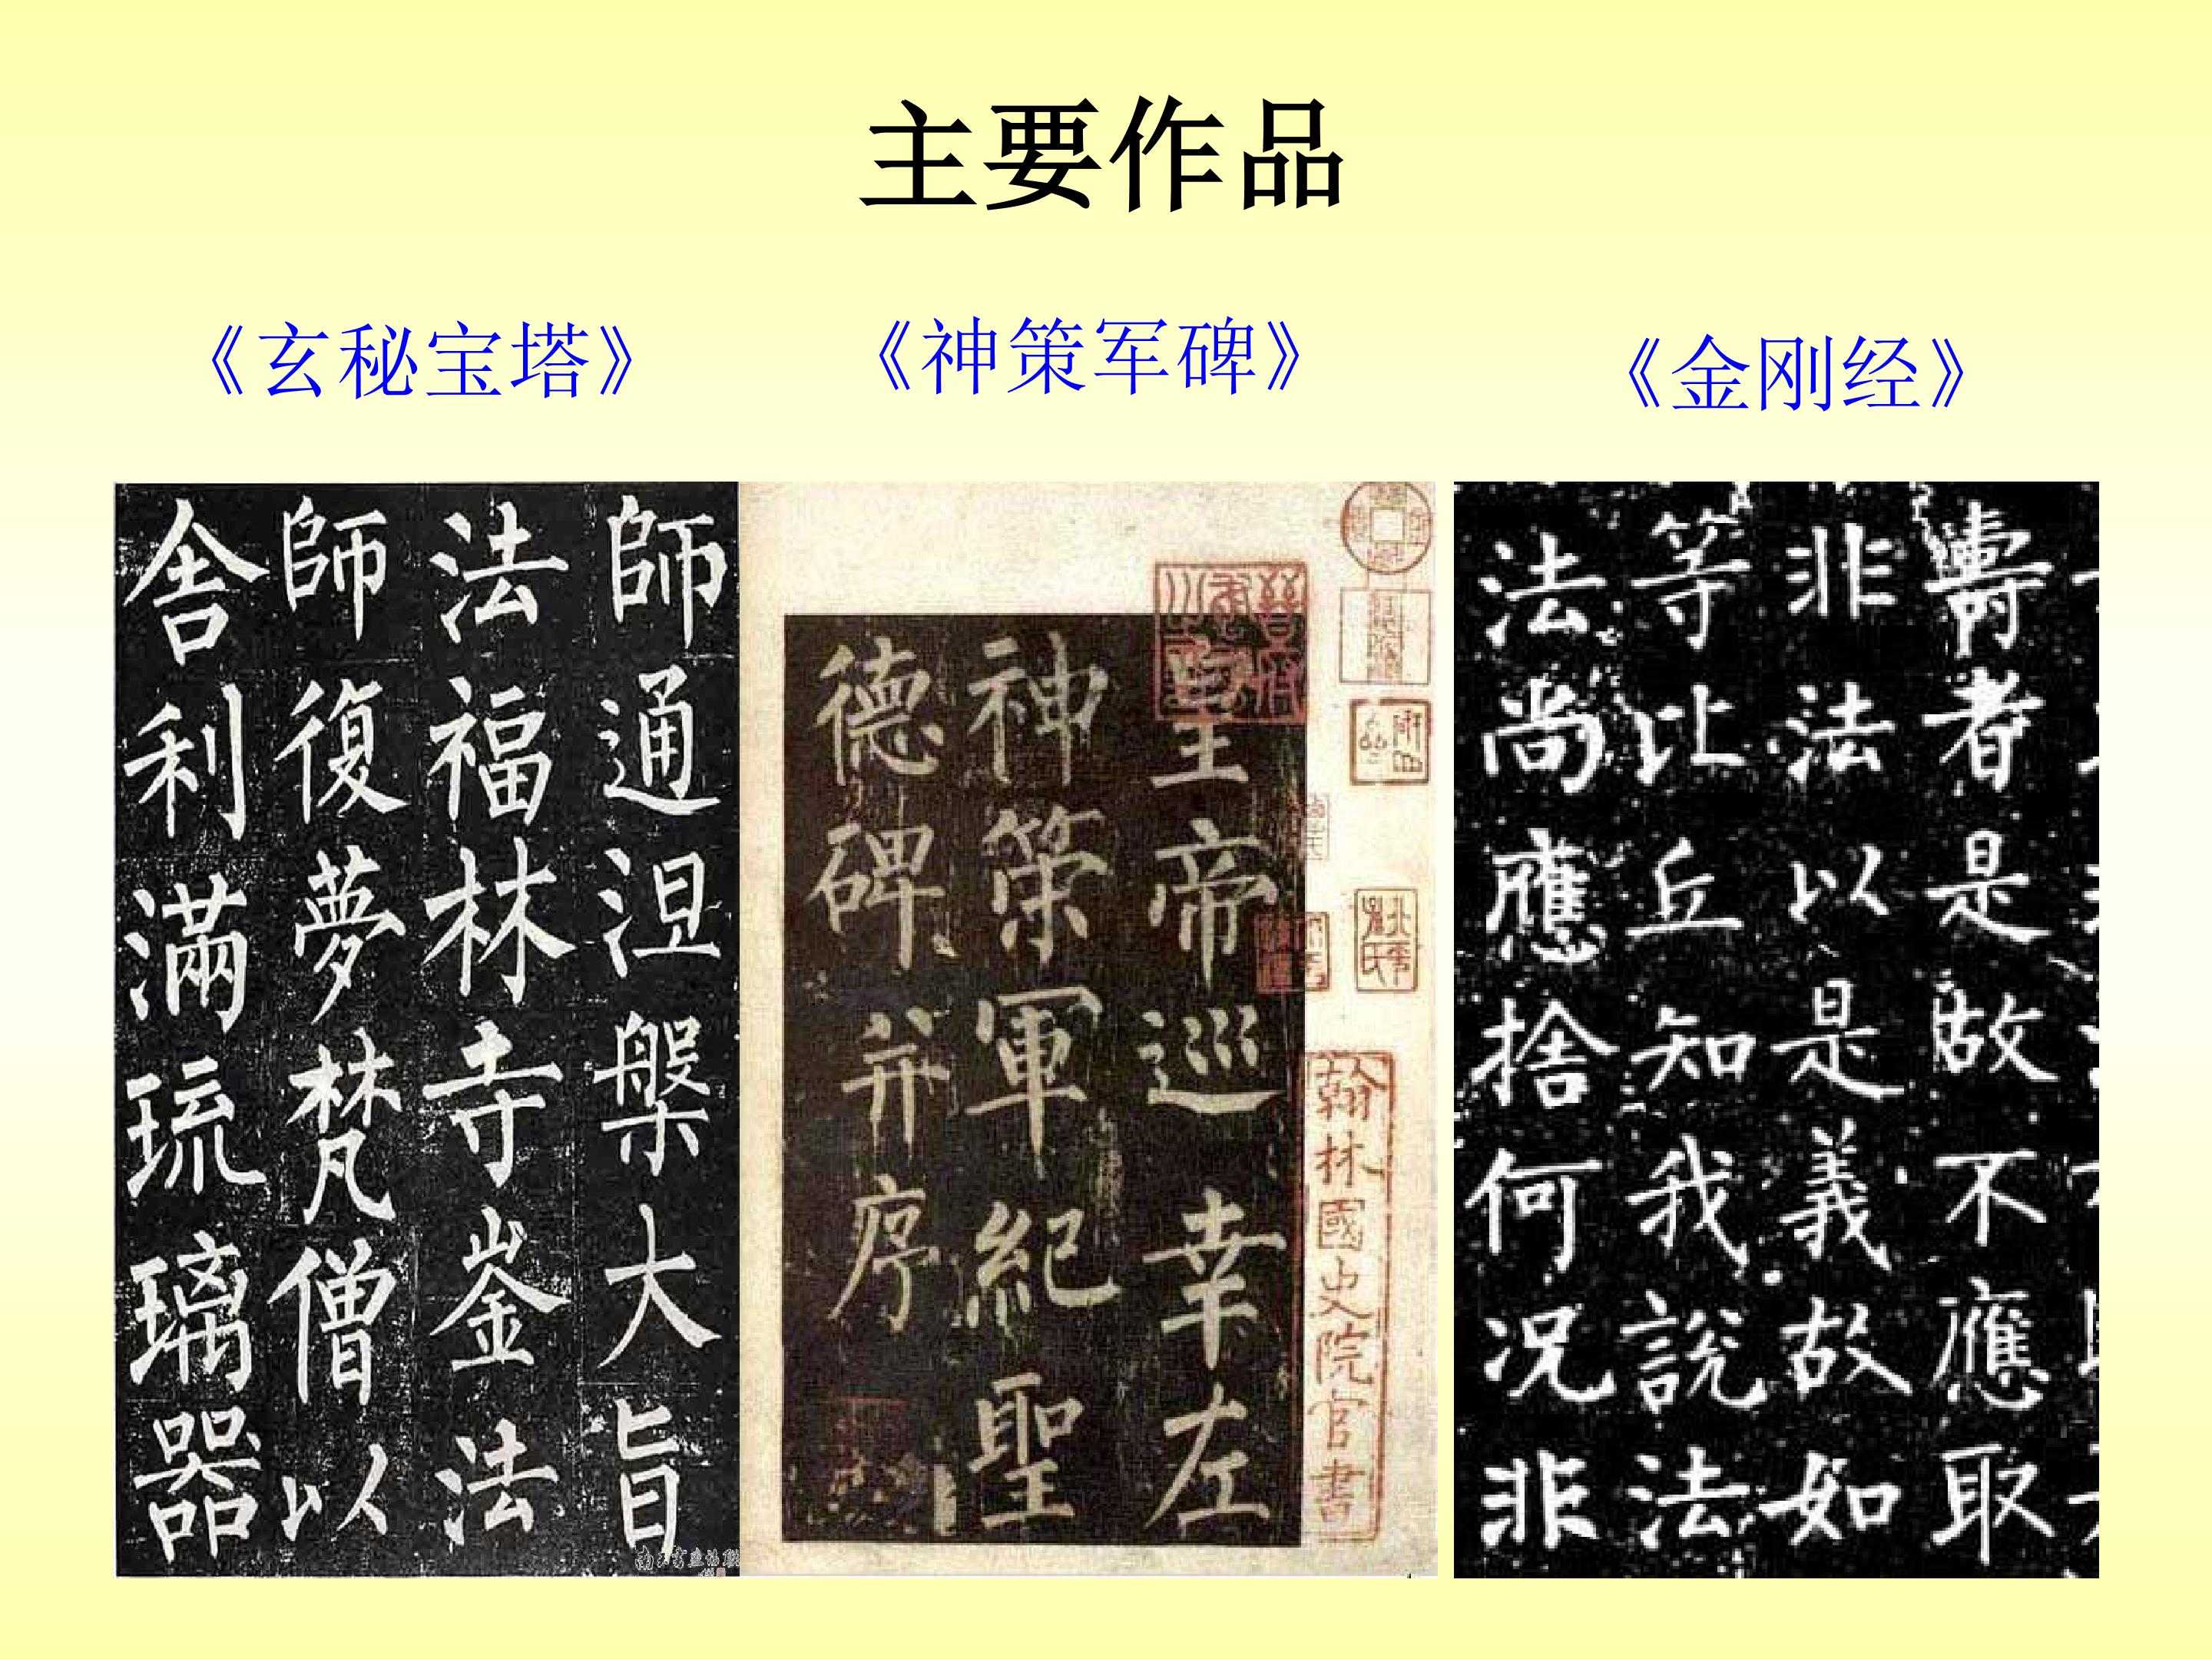 主要作品
《玄秘宝塔》
《神策军碑》
《金刚经》
師通涅槃大旨
法福林寺崟法
師復夢梵僧以
舍利滿琉璃器
皇帝巡幸左
神策軍紀聖
德碑并序
翰林國史院官書
壽者是故不應取
非法以是義故如
等比丘知我說法
法尚應捨何況非